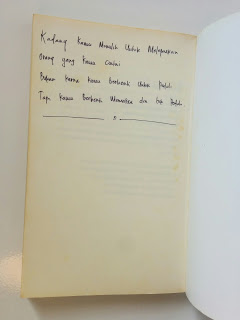 Kadang Kamu Memilih Untuk Melepaskan
Orang yang Kamu Cintai
Bukan karna kamu Berhenti Untuk Peduli
Tapi Kamu Berhenti Memaksa dia tuk Peduli